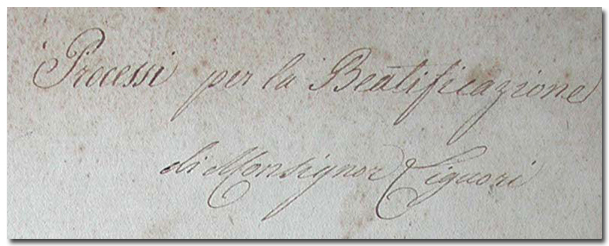 Processi per la Beatificazione
di Monsignor Liguori